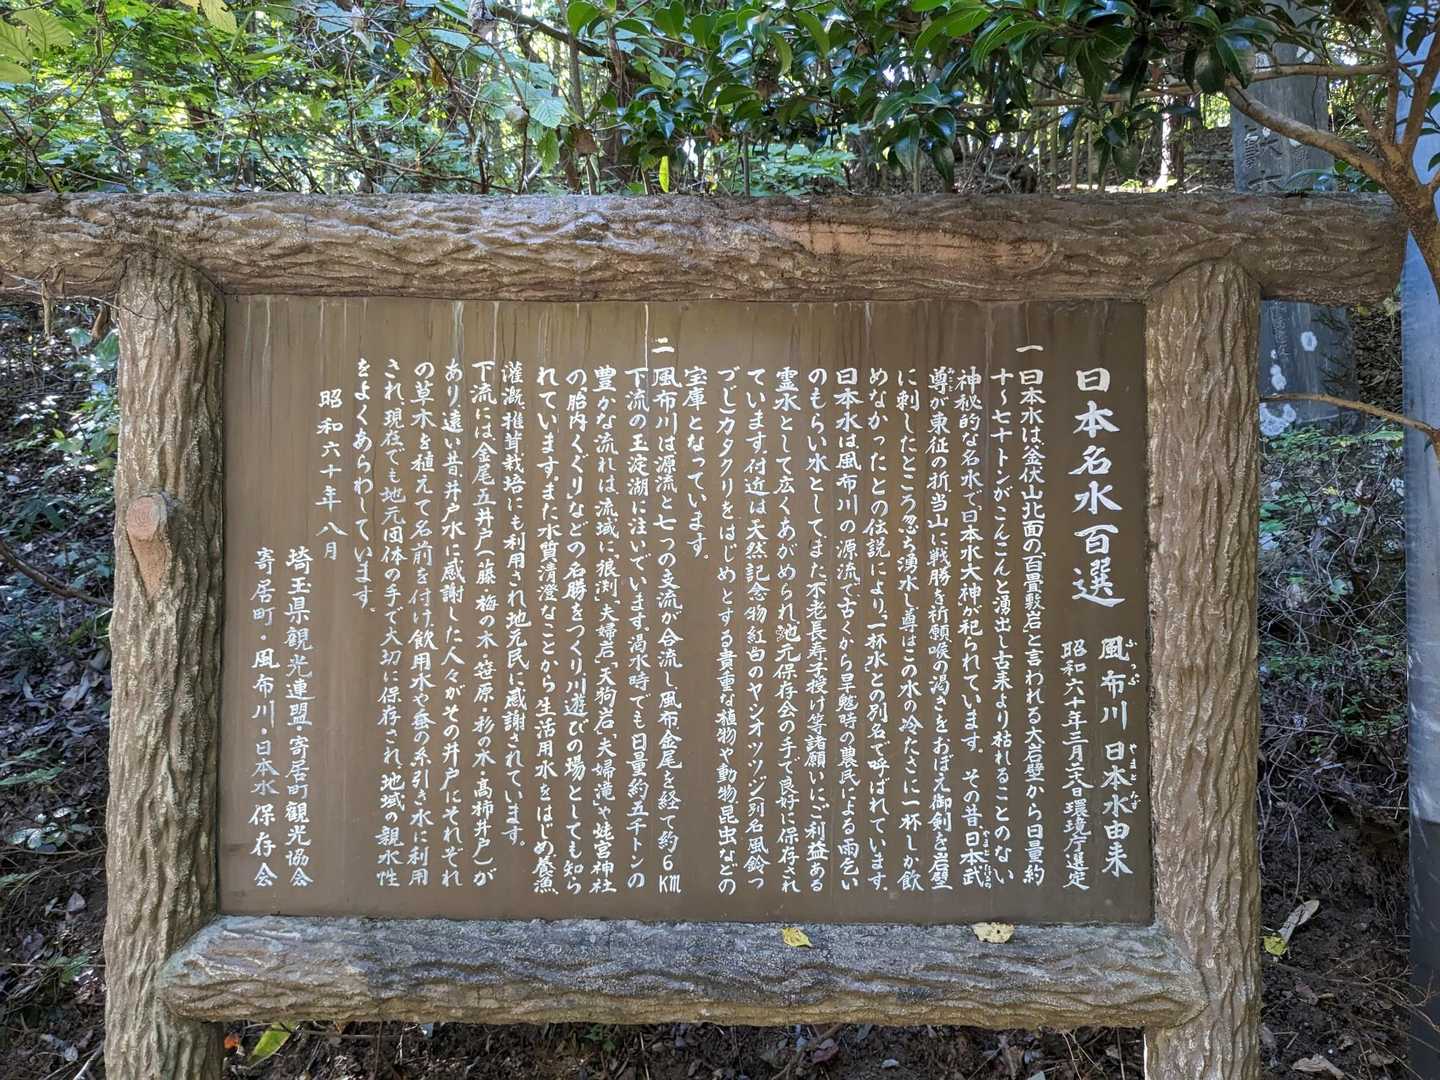 日本名水百選 風布川 日本水由来
ふっぷ やまとみず
昭和六十年三月二八日環境庁選定
一 日本水は釜伏山北面の「百畳敷岩」と言われる大岩壁から日量約
十〜七十トンがこんこんと湧出し古来より枯れることのない
神秘的な名水で、「日本水大神」が祀られています。その昔日本武
やまとたけるの
尊が東征の折当山に戦勝を祈願喉の渇きをおぼえ御剣を岩壁
に刺したところ忽ち湧水し尊はこの水の冷たさに一杯しか飲
めなかったとの伝説により、「一杯水」との別名で呼ばれています。
日本水は風布川の源流で、古くから旱魃時の農民による雨乞い
のもらい水として、また不老長寿、子授け等諸願いにご利益ある
霊水として広くあがめられ、地元保存会の手で良好に保存され
ています。付近は天然記念物紅白のヤシオツツジ(別名風鈴つ
づじ)カタクリをはじめとする貴重な植物や動物、昆虫などの
宝庫となっています。
二 風布川は源流と七つの支流が合流し風布、金尾を経て約6km
下流の玉淀湖に注いでいます。渇水時でも日量約五千トンの
豊かな流れは、流域に、「狼渕」、「夫婦岩」、「天狗岩」、「夫婦滝」や姥宮神社
の、「胎内くぐり」などの名勝をつくり川遊びの場としても知ら
れています。また水質清澄なことから生活用水をはじめ養漁、
灌漑、椎茸栽培にも利用され地元民に感謝されています。
下流には金尾五井戸(藤・梅の木・笹原・杉の木・高柿井戸)が
あり、遠い昔、井戸水に感謝した人々がその井戸にそれぞれ
の草木を植えて名前を付け飲用水や蚕の糸引き水に利用
され、現在でも地元団体の手で大切に保存され、地域の親水性
をよくあらわしています。
昭和六十年八月
埼玉県観光連盟・寄居町観光協会
寄居町・風布川・日本水保存会